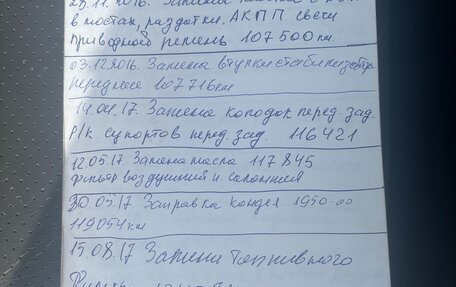 28.11.2016. Замена масла в ДВС
в мостах, раздатки. АКПП свечи
Приводной ремень 107500км.
03.12.2016. Замена втулки стабилизатора
переднее 107716км
14.04.17. Замена колодок перед. зад.
Р/к. супортов перед. зад. 116421
12.05.17 Замена масла 117845
фильтр воздушний и салонний
30 05.17 Заправка кондея 1950-00
119054км
15.08.17 Замена Топливного